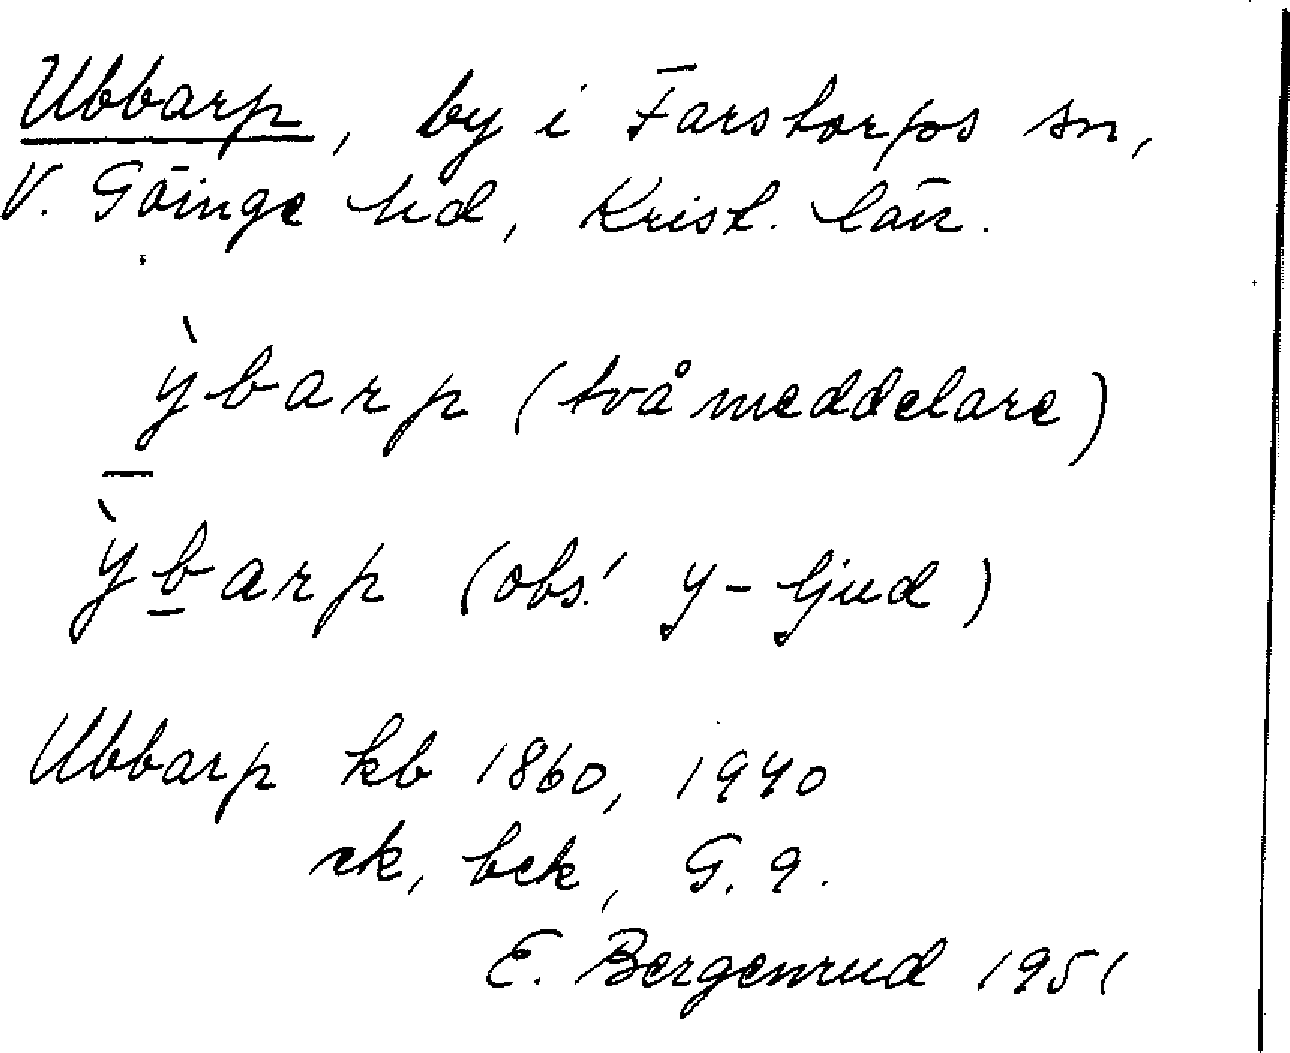 Ubbarp, by i Farstorps sn,
V. Göinge hd, Krist. län.
ỳbarp (två meddelare)
ỳb̲arp (obs! y-ljud)
Ubbarp kb 1860, 1940
ek, bek, G. 9.
E. Bergenrud 1951